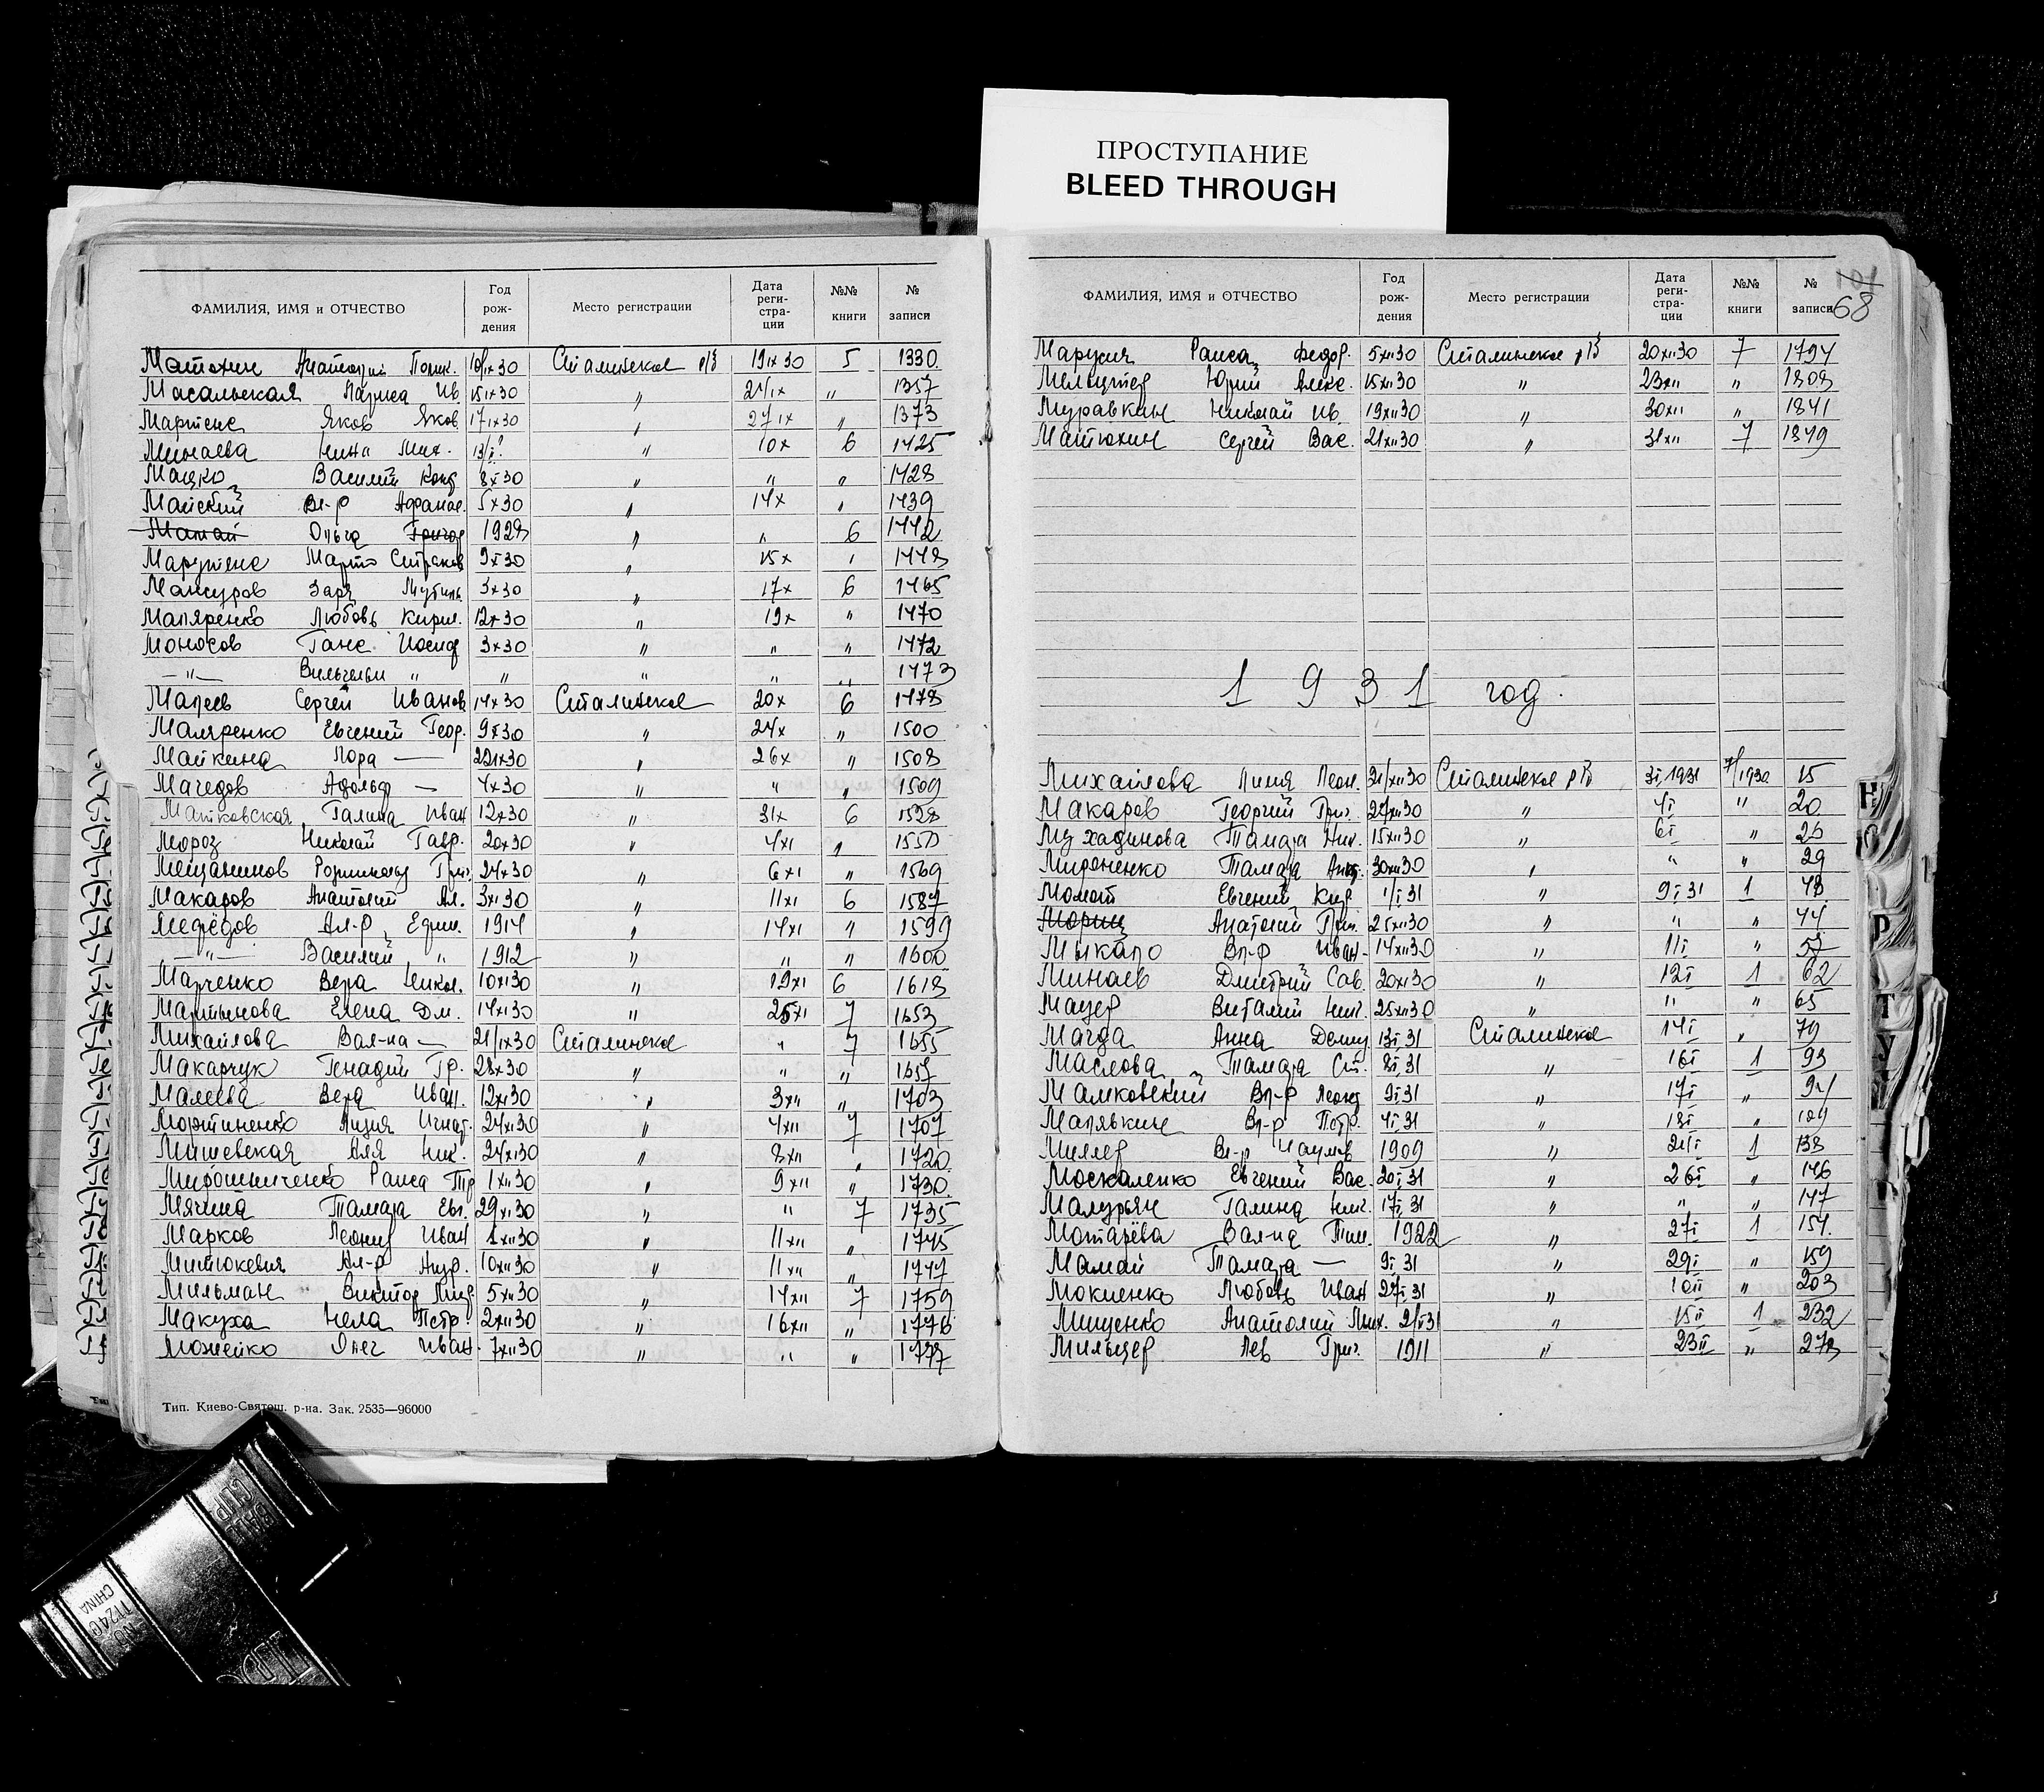 ПРОСТУПАНИЕ
BLEED THROUGH
ФАМИЛИЯ, ИМЯ и ОТЧЕСТВО Год рождения Место регистрации Дата регистрации №№ книги № записи
Матюхин Анатолий 30 Сталинское 19 IX 30 5 1330
Масальская Лариса Ив. 15 IX 30 " 24/IX " 1357
Мартенс Яков Яков 17 IX 30 " 27 IX " 1373
Минаева Нина Мих. " 10 X 6 1425
Мацко Василий Конд 8 X 30 " " " 1428
Майский Вл-р Афанас. 5 X 30 " 14 X " 1439
Мамай Ольга Григор 1928 " " 6 1442
9 X 30 " 15 X " 1448
Мансуров Заря 3 X 30 " 17 X 6 1465
Маляренко Любовь Кирил. 12 X 30 " 19 X " 1470
Моносов Ганс Иосиф 3 X 30 " " " 1472
— " — Вильгельм " " " " " 1473
Малеев Сергей Иванов 14 X 30 Сталинское 20 X 6 1478
Маляренко Евгений Геор. 9 X 30 " 24 X " 1500
Майкина Лора — " 26 X " 1508
Мачедов Адольф — 4 X 30 " " " 1509
Матковская Галина Иван 12 X 30 " 31 X 6 1528
Мороз Николай Гавр. 20 X 30 " 4 XI " 1550
Мещанинов Григ. 24 X 30 " 6 XI " 1569
Макаров Анатолий Ал. 3 XI 30 " 11 XI 6 1587
Ал-р Ефим. 1914 " 14 XI " 1599
— " — Василий " 1912 " " " 1600
Марченко Вера Никол. 10 XI 30 " 19 XI 6 1618
Мартынова Елена Дм. 14 XI 30 " 25 XI 7 1653
Михайлова Вал-на — 21/IX 30 Сталинское " 7 1655
Макарчук Генадий Гр. 28 X 30 " " " 1657
Малеева Вера Иван. 12 XI 30 " 3 XII " 1703
Мартиненко Лидия Игнат. 24 XI 30 " 4 XII 7 1707
Мишевская Аля Ник. 24 XI 30 " 8 XII " 1720
Мирошниченко Раиса 1 XII 30 " 9 XII " 1730
Мячина Тамара Евг. 29 XI 30 " " 7 1735
Марков Леонид Иван 1 XII 30 " 11 XII " 1745
Митюкевич Ал-р Андр. 10 XII 30 " 11 XII " 1747
Мильман Виктор 5 XII 30 " 14 XII 7 1759
Макуха Нела Петр. 2 XII 30 " 16 XII " 1776
Можейко Олег Иван. 7 XII 30 " " " 1777
Тип. Киево-Святош. р-на. Зак. 2535—96000
68
ФАМИЛИЯ, ИМЯ и ОТЧЕСТВО Год рождения Место регистрации Дата регистрации №№ книги № записи
Марусич Раиса Федор. 5 XII 30 Сталинское 20 XII 30 7 1794
Юрий Алекс. 15 XII 30 " 23 XII " 1808
Муравкин Николай Ив. 19 XII 30 " 30 XII " 1841
Матюхин Сергей Вас. 21 XII 30 " 31 XII 7 1849
1931 год.
Михайлова Лиля Леон. 31/XII 30 Сталинское 3 I 1931 7/1930 15
Макаров Георгий Григ. XII 30 " 4 I " 20
Мухадинова Тамара Ник. 15 XII 30 " 6 I " 26
Мироненко Тамара 30 XII 30 " " " 29
Момот Евгений Кир 1/I 31 " 9 I 31 1 43
Мориц Анатолий Григ. 25 XII 30 " " " 44
Мыкало Вл-р Иван. 14 XII 30 " 11 I " 57
Минаев Дмитрий Сав. 20 XI 30 " 12 I 1 62
Мацер Виталий Ник. 25 XII 30 " " " 65
Магда Анна 13 I 31 Сталинское 14 I " 79
Маслова Тамара Ст. 8 I 31 " 16 I 1 93
Мамковский Вл-р Леонд 9 I 31 " 17 I " 94
Малявкин Вл-р Петр. 4 I 31 " 18 I " 109
Миллер Вл-р Наумов 1909 " 21 I 1 138
Москаленко Евгений Вас. 20 I 31 " 26 I " 146
Галина Ник. 17 I 31 " " " 147
Мотарёва Вал-на Тим. 1922 " 27 I 1 154
Мамай Тамара — 9 I 31 " 29 I " 159
Мокиенко Любовь Иван 27 I 31 " 10 II " 203
Мищенко Анатолий Мих. 31 " 15 II 1 232
Мильцер Лев Григ. 1911 " 23 II " 273
CHINA